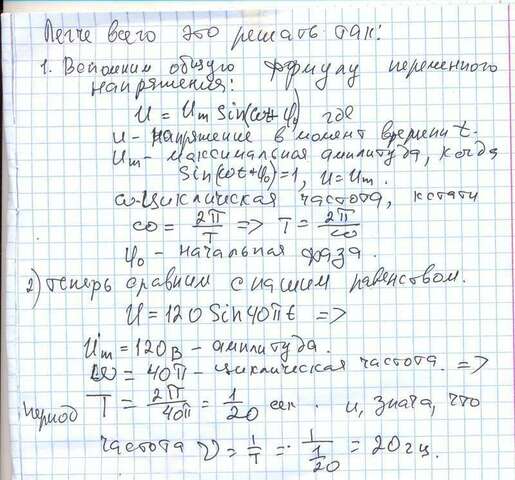 Легче всего это решать так:
1. Вспомним общую формулу переменного
напряжения:
U = Um Sin(ωt+φ0) где
u - напряжение в момент времени t.
Um - максимальная амплитуда, когда
Sin(ωt+φ0)=1, u=Um.
ω - циклическая частота, кстати
ω = 2π/T => T = 2π/ω
φ0 - начальная фаза.
2) теперь сравним с нашим равенством.
U = 120 Sin40πt =>
Um = 120в - амплитуда.
ω = 40π - циклическая частота. =>
период T = 2π/40π = 1/20 сек. и, знача, что
частота ν = 1/T = 1/(1/20) = 20гц.